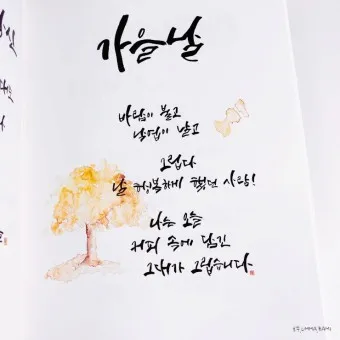 가을날
바람이 불고
낙엽이 날고
그립다
날 행복하게 했던 사람!
나는 오늘
커피 속에 담긴
그대가 그립습니다.